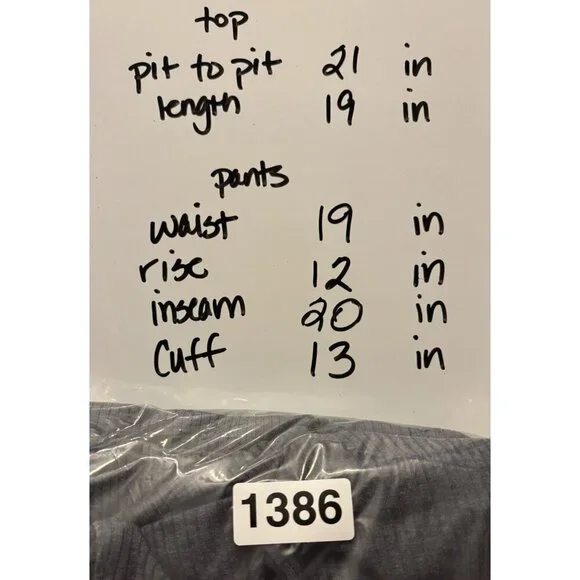 top
pit to pit 21 in
length 19 in
pants
waist 19 in
rise 12 in
inseam 20 in
Cuff 13 in
1386